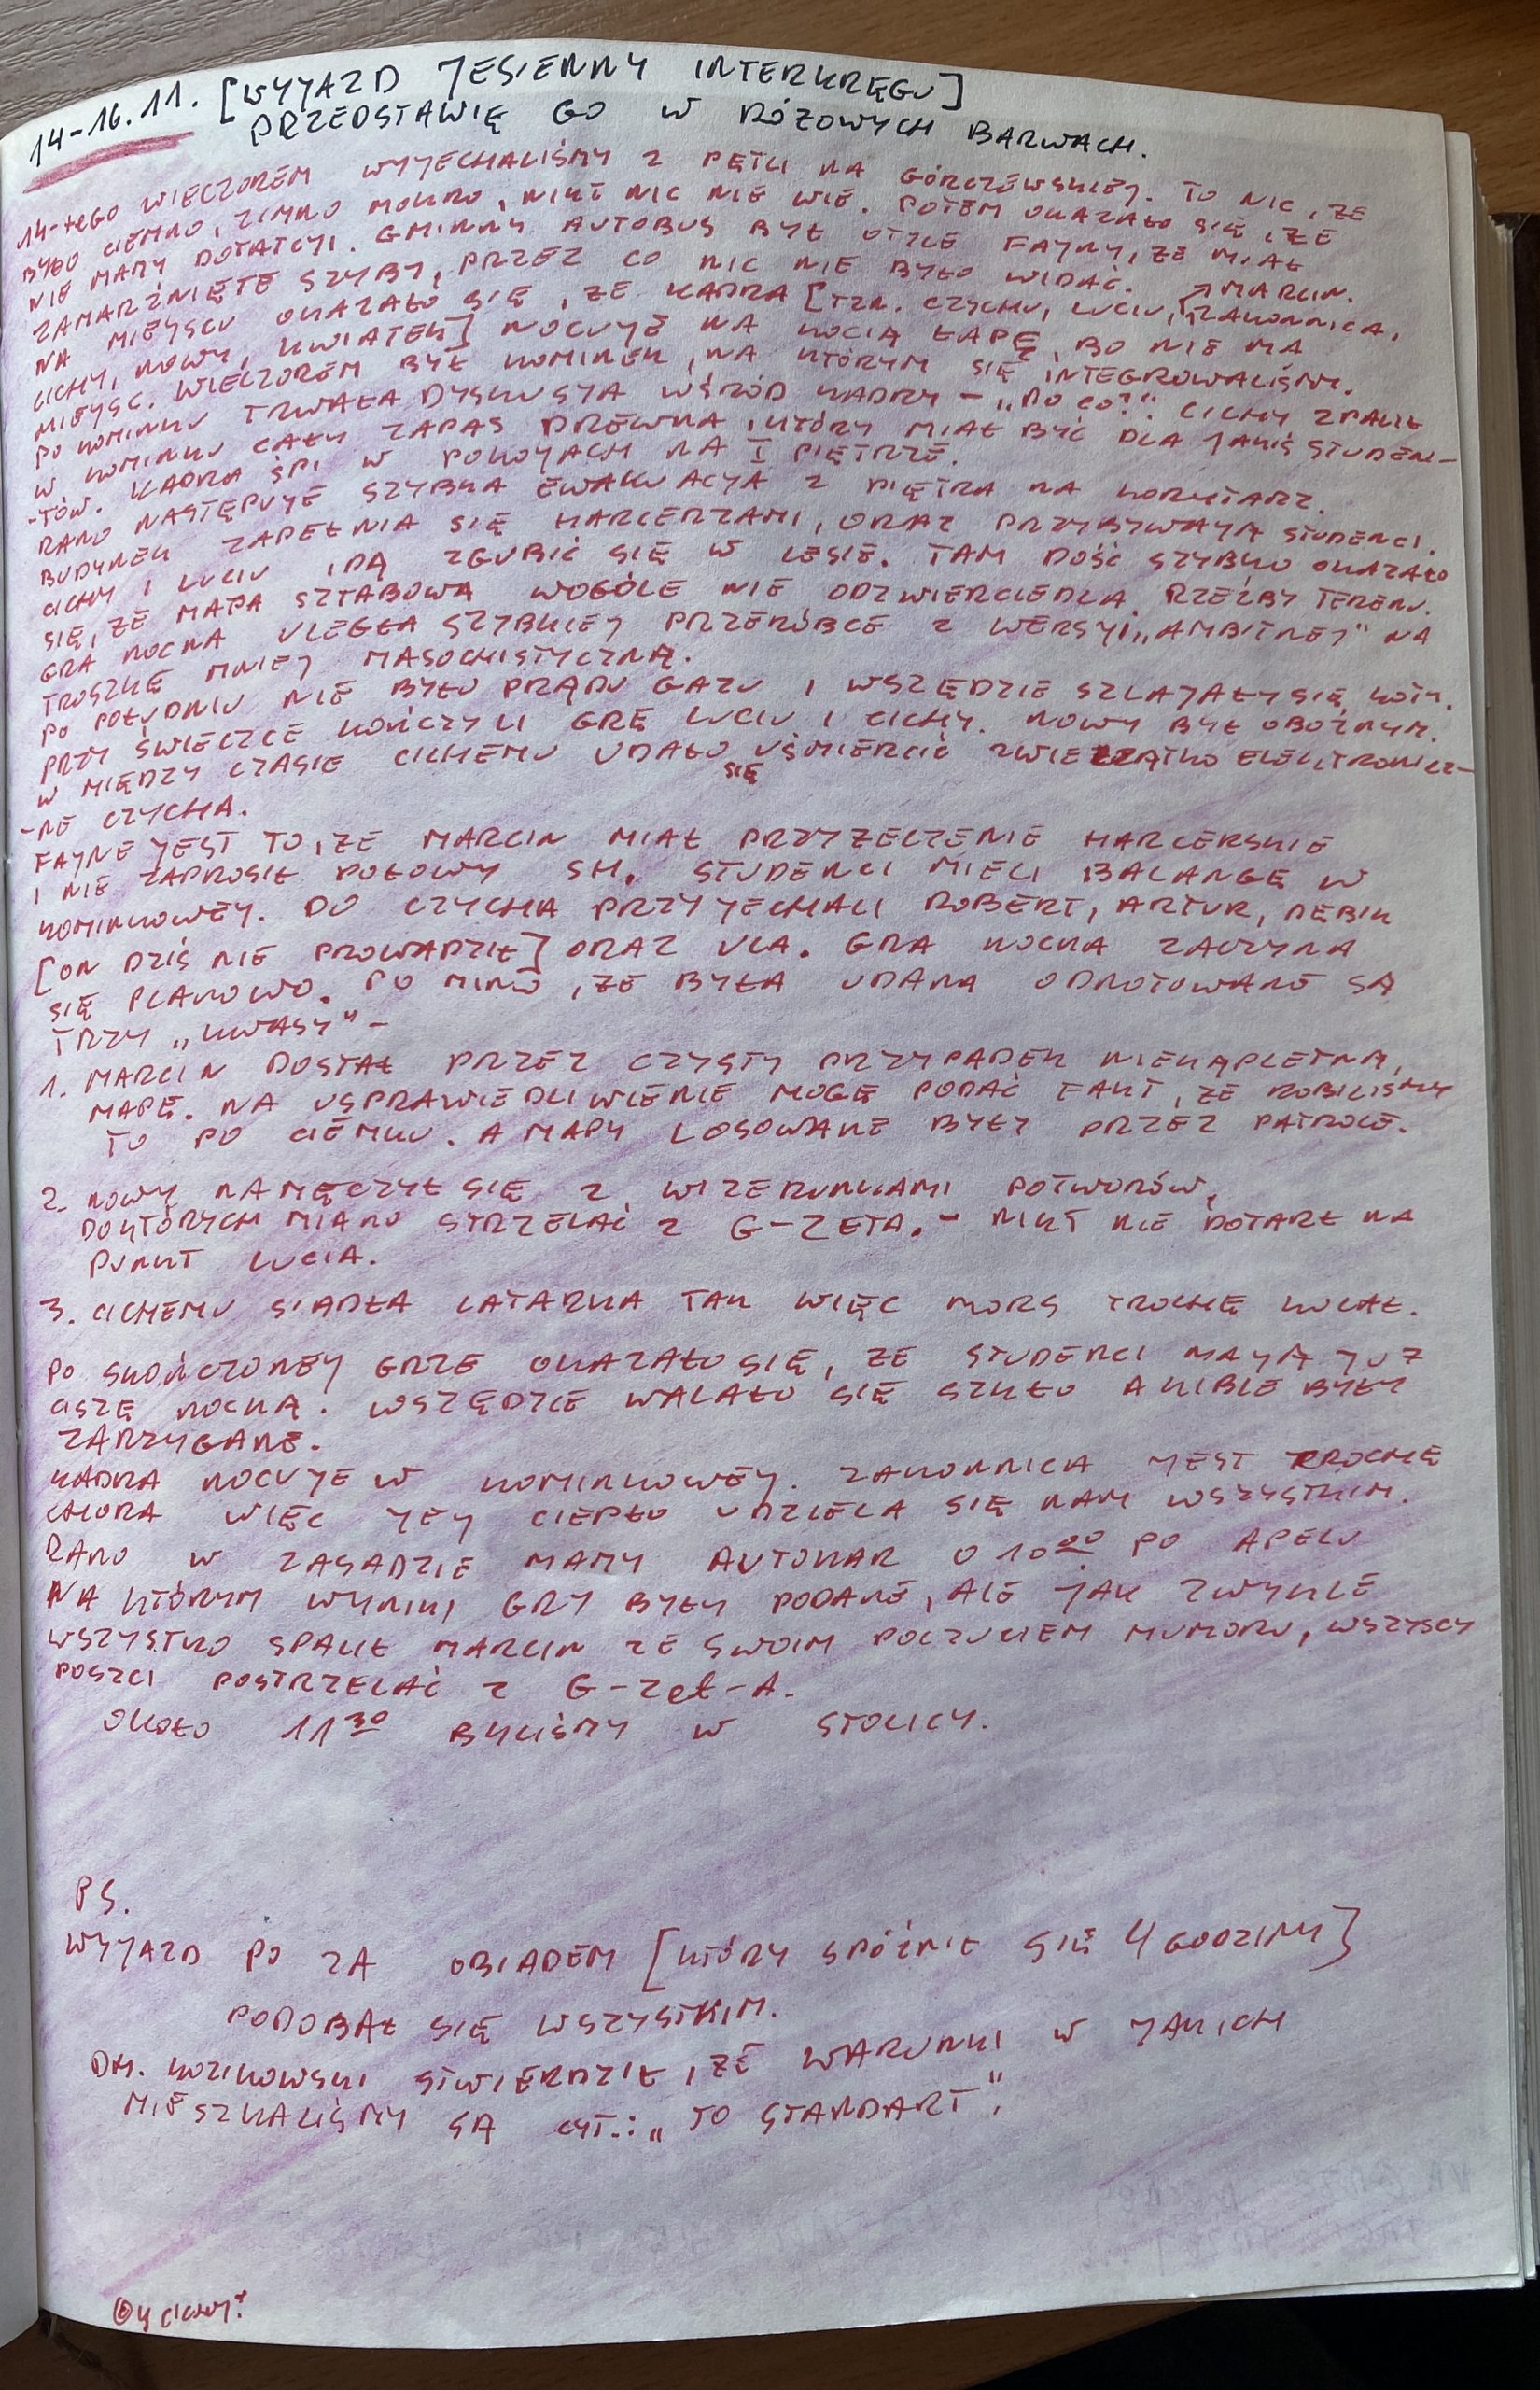 14-16.11. [WYJAZD JESIENNY INTERKRĘGU]
PRZEDSTAWIĘ GO W RÓŻOWYCH BARWACH.
14-tEGO WIECZOREM WYJECHALIŚMY Z PĘTLI NA GÓRCZEWSKIEJ. TO NIC, ŻE
BYŁO CIEMNO, ZIMNO MOKRO, NIKT NIC NIE WIE. POTEM OKAZAŁO SIĘ, ŻE
NIE MAMY DOTATCJI. GMINNY AUTOBUS BYŁ TYLE FAJNY, ŻE MIAŁ
ZAMARŹNIĘTE SZYBY, PRZEZ CO NIC NIE BYŁO WIDAĆ. ↗MARCIN.
NA MIEJSCU OKAZAŁO SIĘ, ŻE KADRA [TZN. CZYCHU, LUCIU, ZAKONNICA,
CICHY, NOWY, KWIATEK] NOCUJE NA KOCIĄ ŁAPĘ, BO NIE MA
MIEJSC. WIECZOREM BYŁ KOMINEK, NA KTÓRYM SIĘ INTEGROWALIŚMY.
PO KOMINKU TRWAŁA DYSKUSJA WŚRÓD KADRY - "PO CO?". CICHY SPALIŁ
W KOMINKU CAŁY ZAPAS DREWNA, KTÓRY MIAŁ BYĆ DLA JAKIŚ STUDEN-
-TÓW. KADRA ŚPI W POKOJACH NA I PIĘTRZE.
RANO NASTĘPUJE SZYBKA EWAKUACJA Z PIĘTRA NA KORYTARZ.
BUDYNEK ZAPEŁNIA SIĘ HARCERZAMI, ORAZ PRZYBYWAJĄ STUDENCI.
CICHY I LUCIU IDĄ ZGUBIĆ SIĘ W LESIE. TAM DOŚĆ SZYBKO OKAZAŁO
SIĘ, ŻE MAPA SZTABOWA WOGÓLE NIE ODZWIERCIEDLA RZEŹBY TERENU.
GRA NOCNA ULEGŁA SZYBKIEJ PRZERÓBCE Z WERSJI "AMBITNEJ" NA
TROSZKĘ MNIEJ MASOCHISTYCZNĄ.
PO POŁUDNIU NIE BYŁO PRĄDU GAZU I WSZĘDZIE SZLAJAŁY SIĘ KOTY.
PRZY ŚWIECZCE KOŃCZYLI GRĘ LUCIU I CICHY. NOWY BYŁ OBOŹNYM.
W MIĘDZY CZASIE CICHEMU UDAŁO SIĘ UŚMIERCIĆ ZWIERZĄTKO ELEKTRONICZ-
-NE CZYCHA.
FAJNE JEST TO, ŻE MARCIN MIAŁ PRZYŻECZENIE HARCERSKIE
I NIE ZAPROSIŁ POŁOWY SH. STUDENCI MIELI BALANGĘ W
KOMINKOWEJ. DO CZYCHA PRZYJECHALI ROBERT, ARTUR, DEBIK
[ON DZIŚ NIE PROWADZIŁ] ORAZ ULA. GRA NOCNA ZACZYNA
SIĘ PLANOWO. PO MIMO, ŻE BYŁA UDANA ODNOTOWANE SĄ
TRZY "KWASY" -
1. MARCIN DOSTAŁ PRZEZ CZYSTY PRZYPADEK NIEKĄPLETNĄ
MAPĘ. NA USPRAWIEDLIWIENIE MOGĘ PODAĆ FAKT, ŻE ROBILIŚMY
TO PO CIEMKU. A MAPY LOSOWANE BYŁY PRZEZ PATROLE.
2. NOWY NAMĘCZYŁ SIĘ Z WIZERUNKAMI POTWORÓW,
DO KTÓRYCH MIANO STRZELAĆ Z G-ZETA. - NIKT NIE DOTARŁ NA
PUNKT LUCIA.
3. CICHEMU SIADŁA LATARKA TAK WIĘC MORS TROCHĘ KULAŁ.
PO SKOŃCZONEJ GRZE OKAZAŁO SIĘ, ŻE STUDENCI MAJĄ JUŻ
CISZĘ NOCNĄ. WSZĘDZIE WALAŁO SIĘ SZKŁO A KIBLE BYŁY
ZARZYGANE.
KADRA NOCUJE W KOMINKOWEJ. ZAKONNICA JEST TROCHĘ
CHORA WIĘC JEJ CIEPŁO UDZIELA SIĘ NAM WSZYSTKIM.
RANO W ZASADZIE MAMY AUTOKAR O 10⁰⁰ PO APELU
NA KTÓRYM WYNIKI GRY BYŁY PODANE, ALE JAK ZWYKLE
WSZYSTKO SPALIŁ MARCIN ZE SWOIM POCZUCIEM HUMORU, WSZYSCY
POSZLI POSTRZELAĆ Z G-Zet-A.
OKOŁO 11³⁰ BYLIŚMY W STOLICY.
PS.
WYJAZD PO ZA OBIADEM [KTÓRY SPÓŹNIŁ SIĘ 4 GODZINY]
PODOBAŁ SIĘ WSZYSTKIM.
DH. KOZIKOWSKI STWIERDZIŁ, ŻE WARUNKI W JAKICH
MIESZKALIŚMY SĄ CYT.: "TO STANDART".
by CICHY!